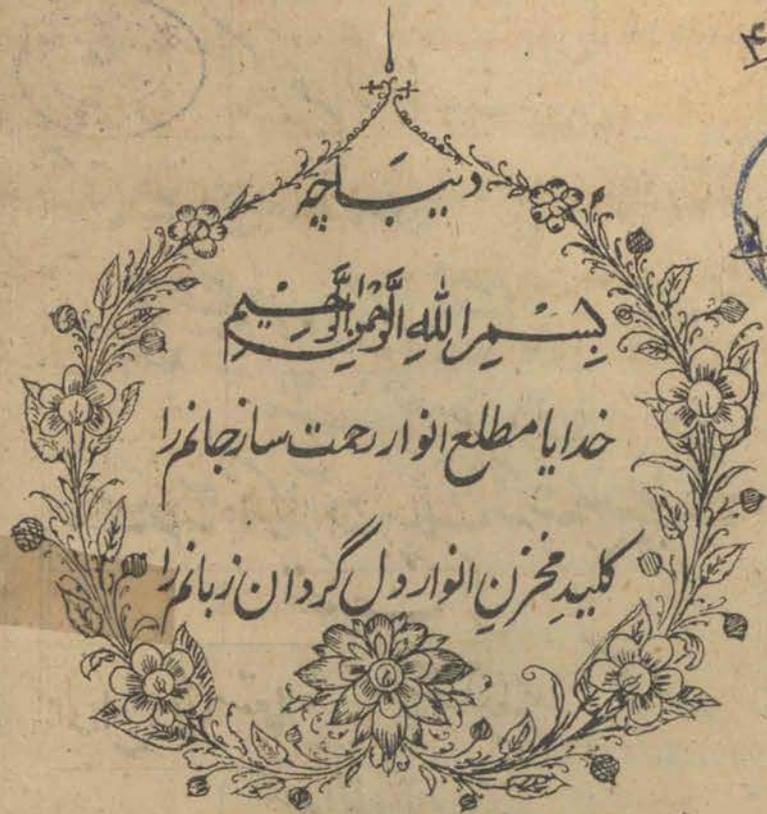 ۴
دیباچہ
بِسْمِ اللهِ الرَّحْمٰنِ الرَّحِيْمِ
خدایا مطلع انوار رحمت ساز جانم را
کلیدِ مخزنِ انوار دل گردان زبانم را